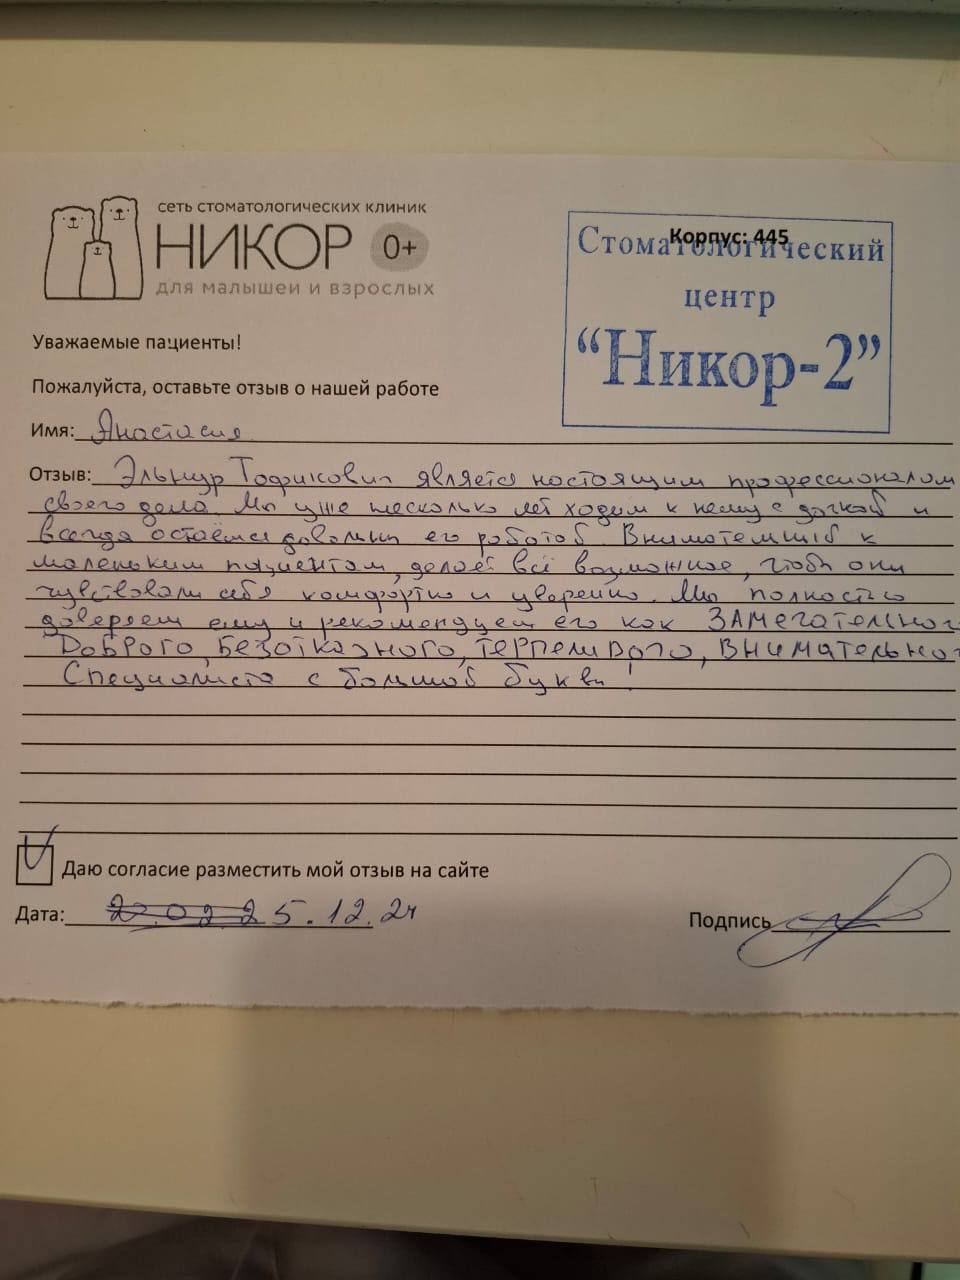 сеть стоматологических клиник
НИКОР 0+
для малышей и взрослых
Корпус: 445
Стоматологический
центр
“Никор-2”
Уважаемые пациенты!
Пожалуйста, оставьте отзыв о нашей работе
Имя: Анастасия
Отзыв: Эльнур Тофикович является настоящим профессионалом
своего дела. Мы уже несколько лет ходим к нему с дочкой и
всегда остаёмся довольны его работой. Внимательный к
маленьким пациентам, делает всё возможное, чтобы они
чувствовали себя комфортно и уверенно. Мы полностью
доверяем ему и рекомендуем его как ЗАМЕЧАТЕЛЬНОГО
Доброго, Безотказного, Терпеливого, Внимательного
Специалиста с большой буквы!
Даю согласие разместить мой отзыв на сайте
Дата: 25.12.24
Подпись